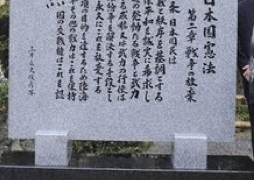 日本国憲法
第二章 戦争の放棄
条 日本国民は
と秩序を基調とする
平和を誠実に希求し
の発動たる戦争と武力
る威嚇又は武力の行使は
争を解決する手段とし
永久にこれを放棄する
項の目的を達するため陸海
の他の戦力はこれを保持
国の交戦権はこれを認